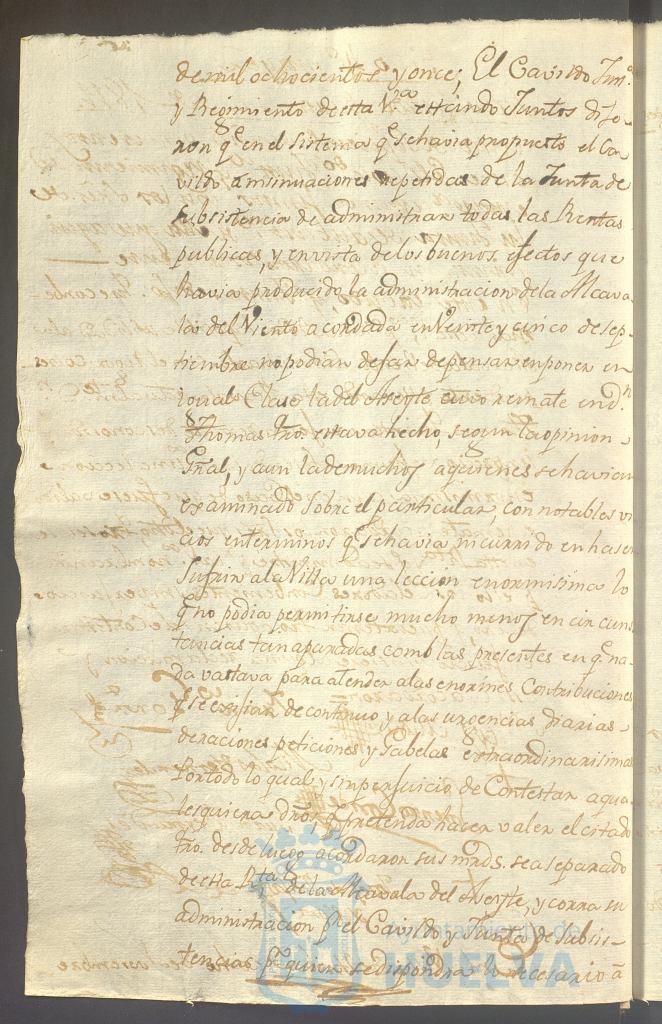 de mil ochocientos y once; El Cavildo Just.ª
y Regimiento de esta V.ª estando Juntos dije-
ron q.e en el sistema q.e se havia propuesto el Ca-
vildo á insinuaciones repetidas de la Junta de
Subsistencia de administrar todas las Rentas
publicas, y en vista de los buenos efectos que
havia producido la administracion de la Alcava-
la del Viento acordada en Veinte y cinco de sep-
tiembre no podian dejar de pensar en poner en
igual Clase la del Aseyte cuio remate en D.n
Thomas Tro. estava hecho, segun la opinion
Gral, y aun la de muchos aquienes se havian
examinado sobre el particular, con notables vi-
cios en terminos q.e se havia incurrido en haser
Sufrir a la Villa una leccion enormisima lo
q.e no podia permitirse mucho menos en circuns-
tancias tan apuradas como las presentes en q.e na-
da vastava para atender a las enormes Contribuciones
q.e se exijian de continuo y a las urgencias diarias
de raciones peticiones y Gabelas extraordinarisimas
Por todo lo qual y sin perjuicio de Contestar a qua-
lesquiera Dros, q.e pretenda hacer valer el citado
Tro. desde luego acordaron sus mrds. sea separado
de esta Rta de la Alcavala del Aseyte, y corra su
administracion p.r el Cavildo y Junta de Subsis-
tencias p.r quien se dispondra lo necesario á
Ayuntamiento de
HUELVA